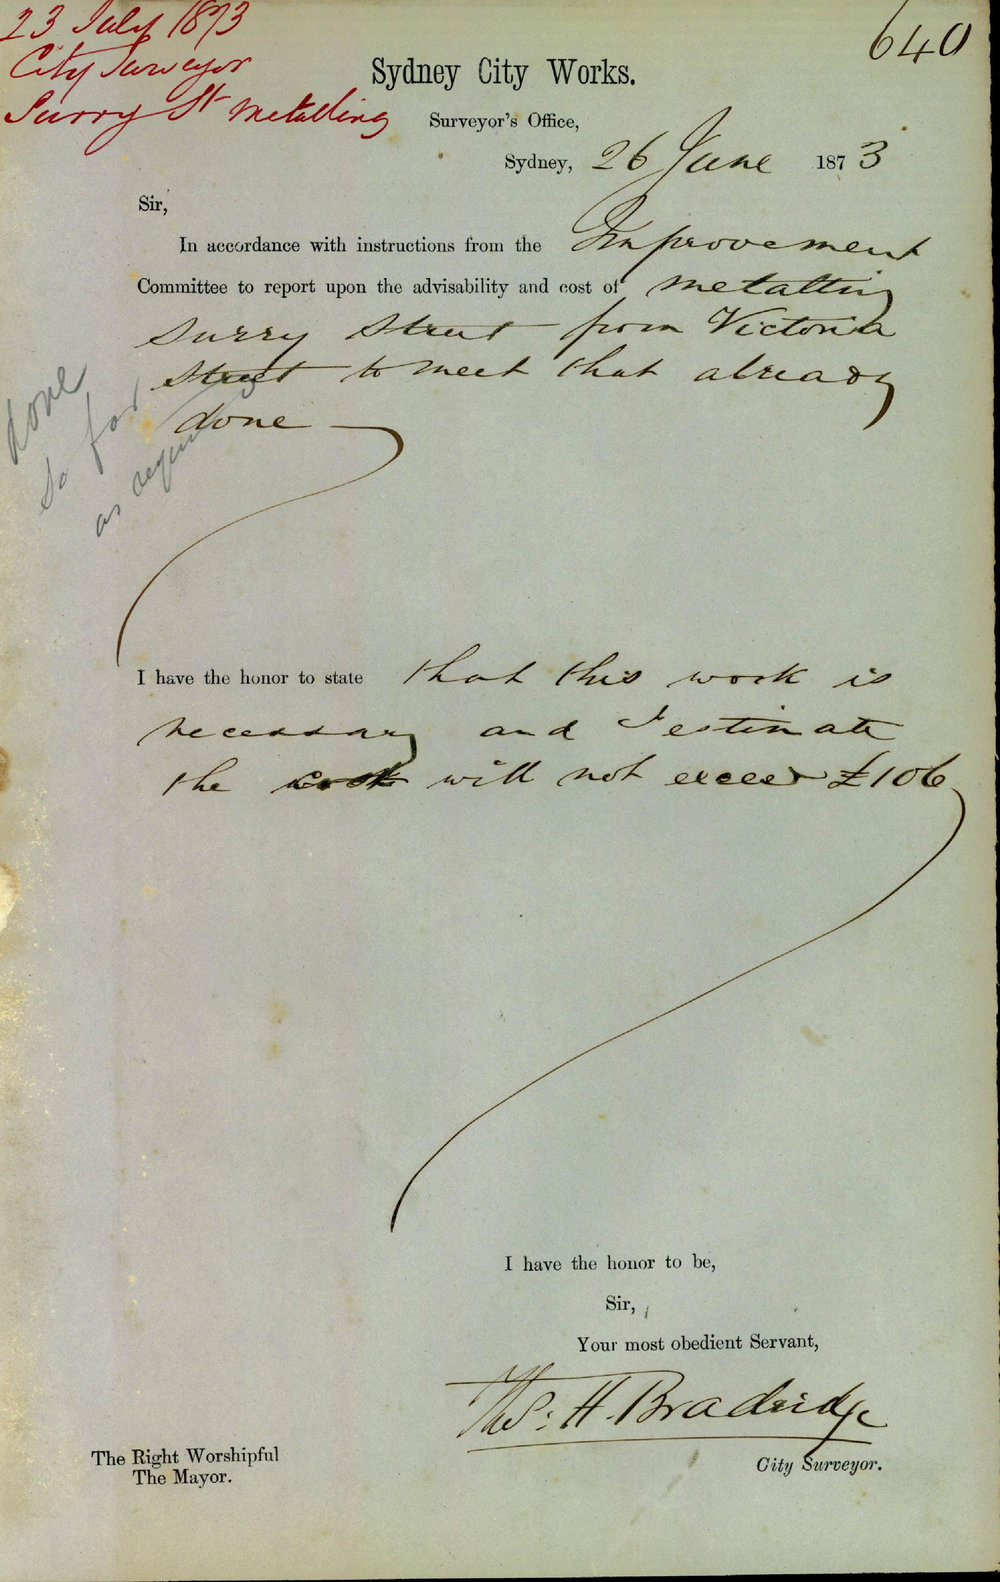 23 July 1873
City Surveyor
Surry St metalling
640
Sydney City Works.
Surveyor's Office,
Sydney, 26 June 1873
Sir,
In accordance with instructions from the Improvement
Committee to report upon the advisability and cost of metalling
Surry Street from Victoria
Street to meet that already
done
done
so far
as required
I have the honor to state that this work is
necessary and I estimate
the cost will not exceed £106
I have the honor to be,
Sir,
Your most obedient Servant,
Thos: H. Bradridge
City Surveyor.
The Right Worshipful
The Mayor.